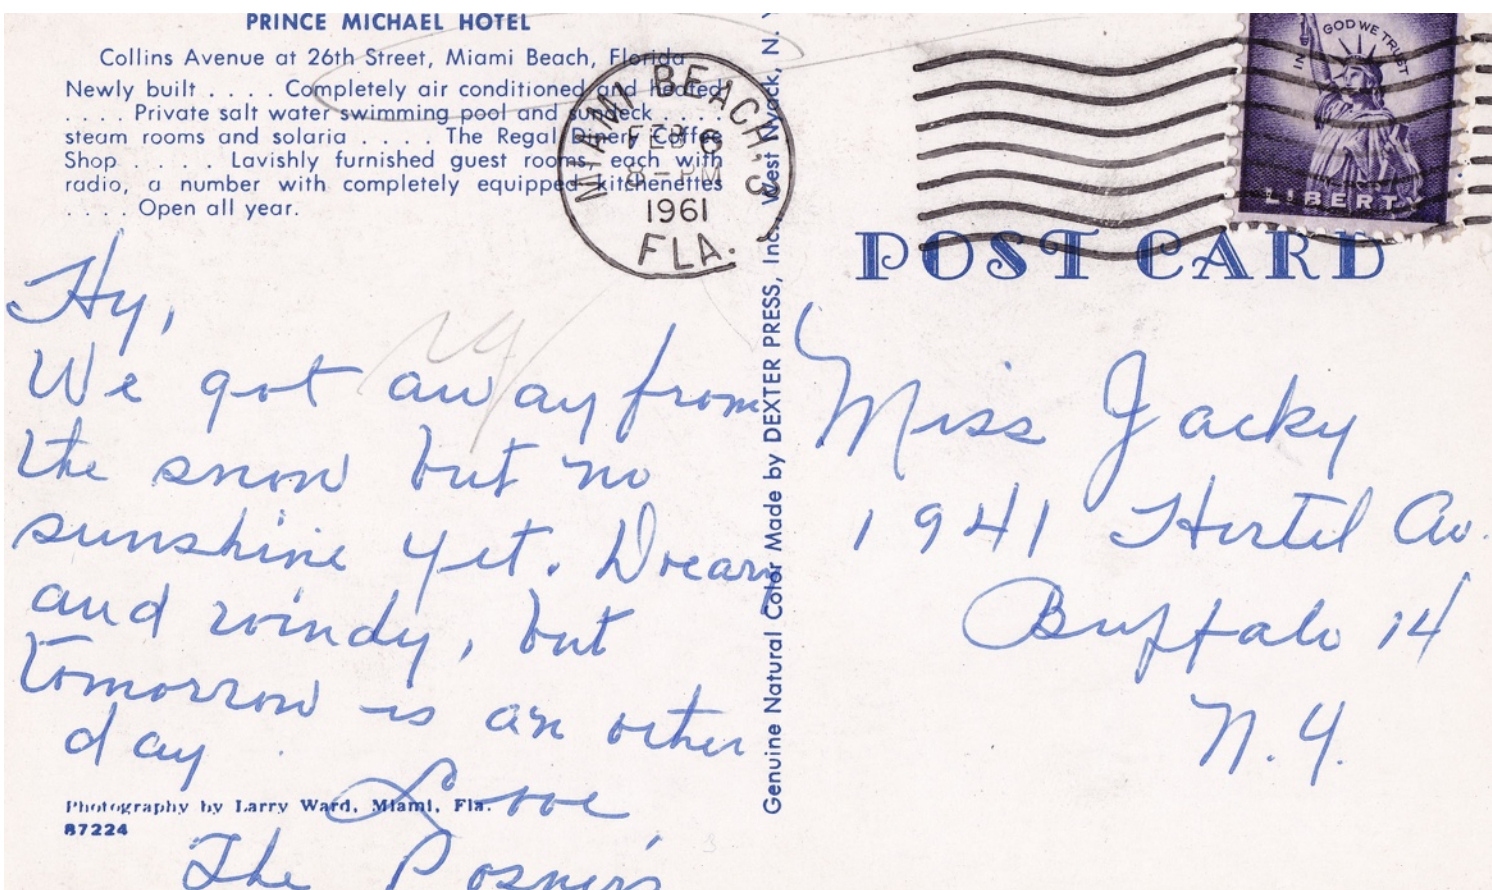 PRINCE MICHAEL HOTEL
Collins Avenue at 26th Street, Miami Beach, Florida
Newly built . . . . Completely air conditioned and heated
. . . . Private salt water swimming pool and sundeck . . . .
steam rooms and solaria . . . . The Regal Dinery Coffee
Shop . . . . Lavishly furnished guest rooms, each with
radio, a number with completely equipped kitchenettes
. . . . Open all year.
Hy,
We got away from
the snow but no
sunshine yet. Dreary
and windy, but
tomorrow is an other
day.
Love
The Posner's
Photography by Larry Ward, Miami, Fla.
87224
Genuine Natural Color Made by DEXTER PRESS, Inc., West Nyack, N. Y
MIAMI BEACH,
FEB 6
8-PM
1961
FLA.
IN GOD WE TRUST
LIBERTY
POST CARD
Miss Jacky
1941 Hertel Av.
Buffalo 14
N.Y.